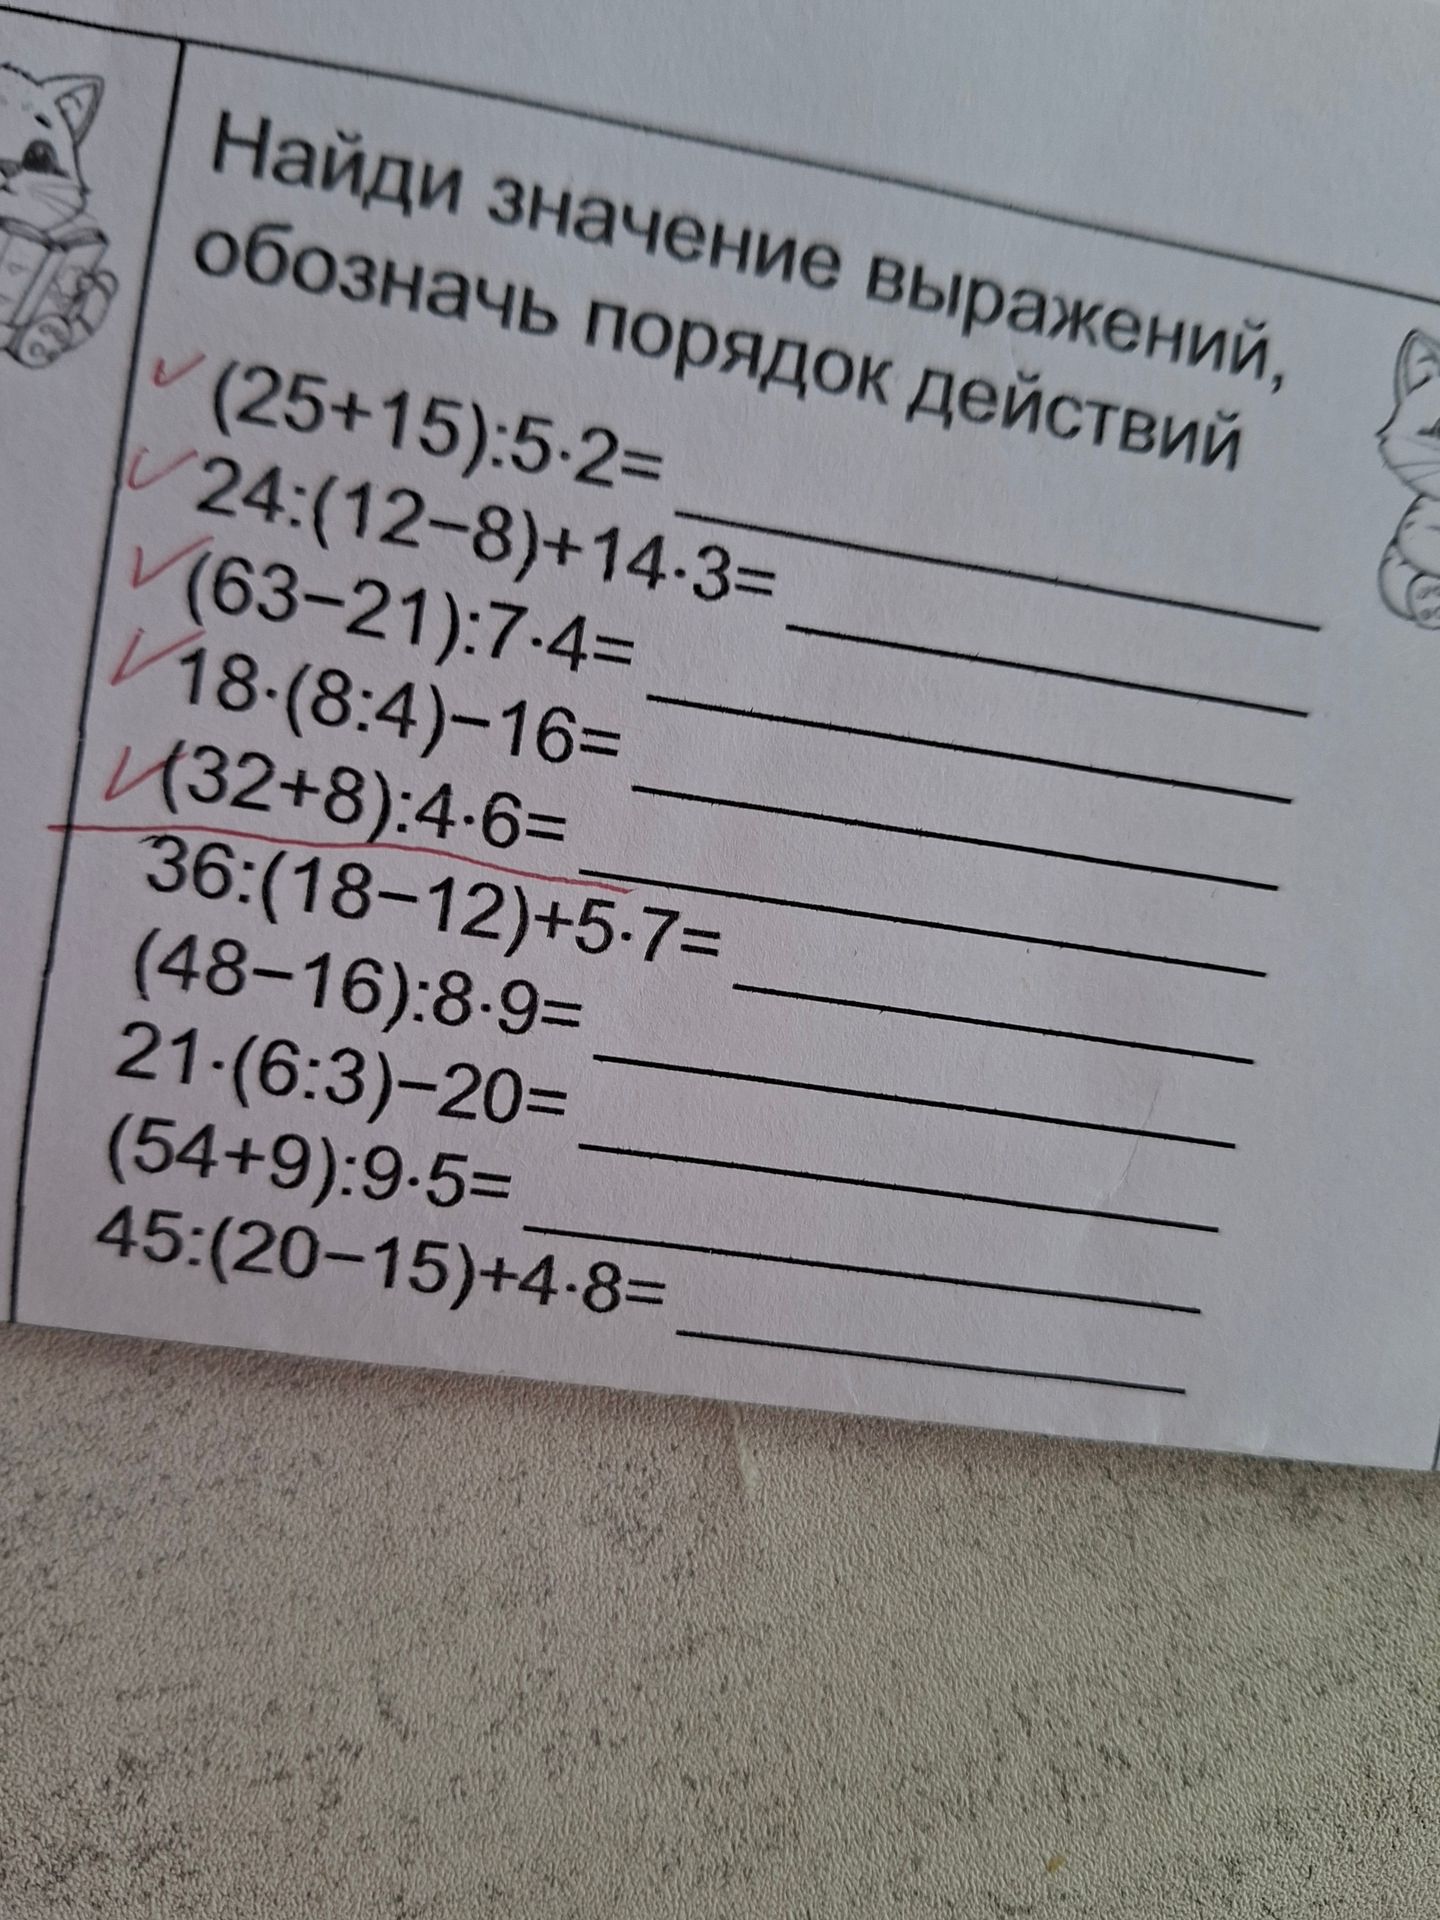 Найди значение выражений,
обозначь порядок действий
(25+15):5·2=
24:(12−8)+14·3=
(63−21):7·4=
18·(8:4)−16=
(32+8):4·6=
36:(18−12)+5·7=
(48−16):8·9=
21·(6:3)−20=
(54+9):9·5=
45:(20−15)+4·8=